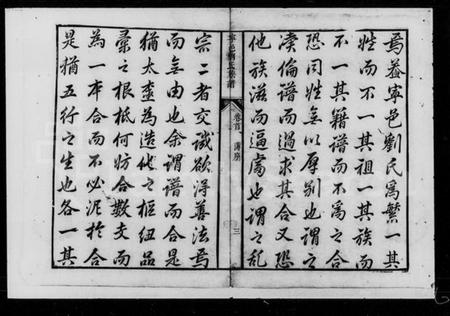 焉蓋寧邑劉氏寔繁一其
姓而不一其祖一其族而
不一其籍譜而不為之合
恐同姓無以厚別也謂之
瀆倫譜而過求其合又恐
他族滋而逼處也謂之亂
卷首
三
宗二者交譏欲得善法焉
而無由也余謂譜而合是
猶太極為造化之樞紐品
彙之根柢何妨合數支而
為一本合而不必泥於合
是猶五行之生也各一其